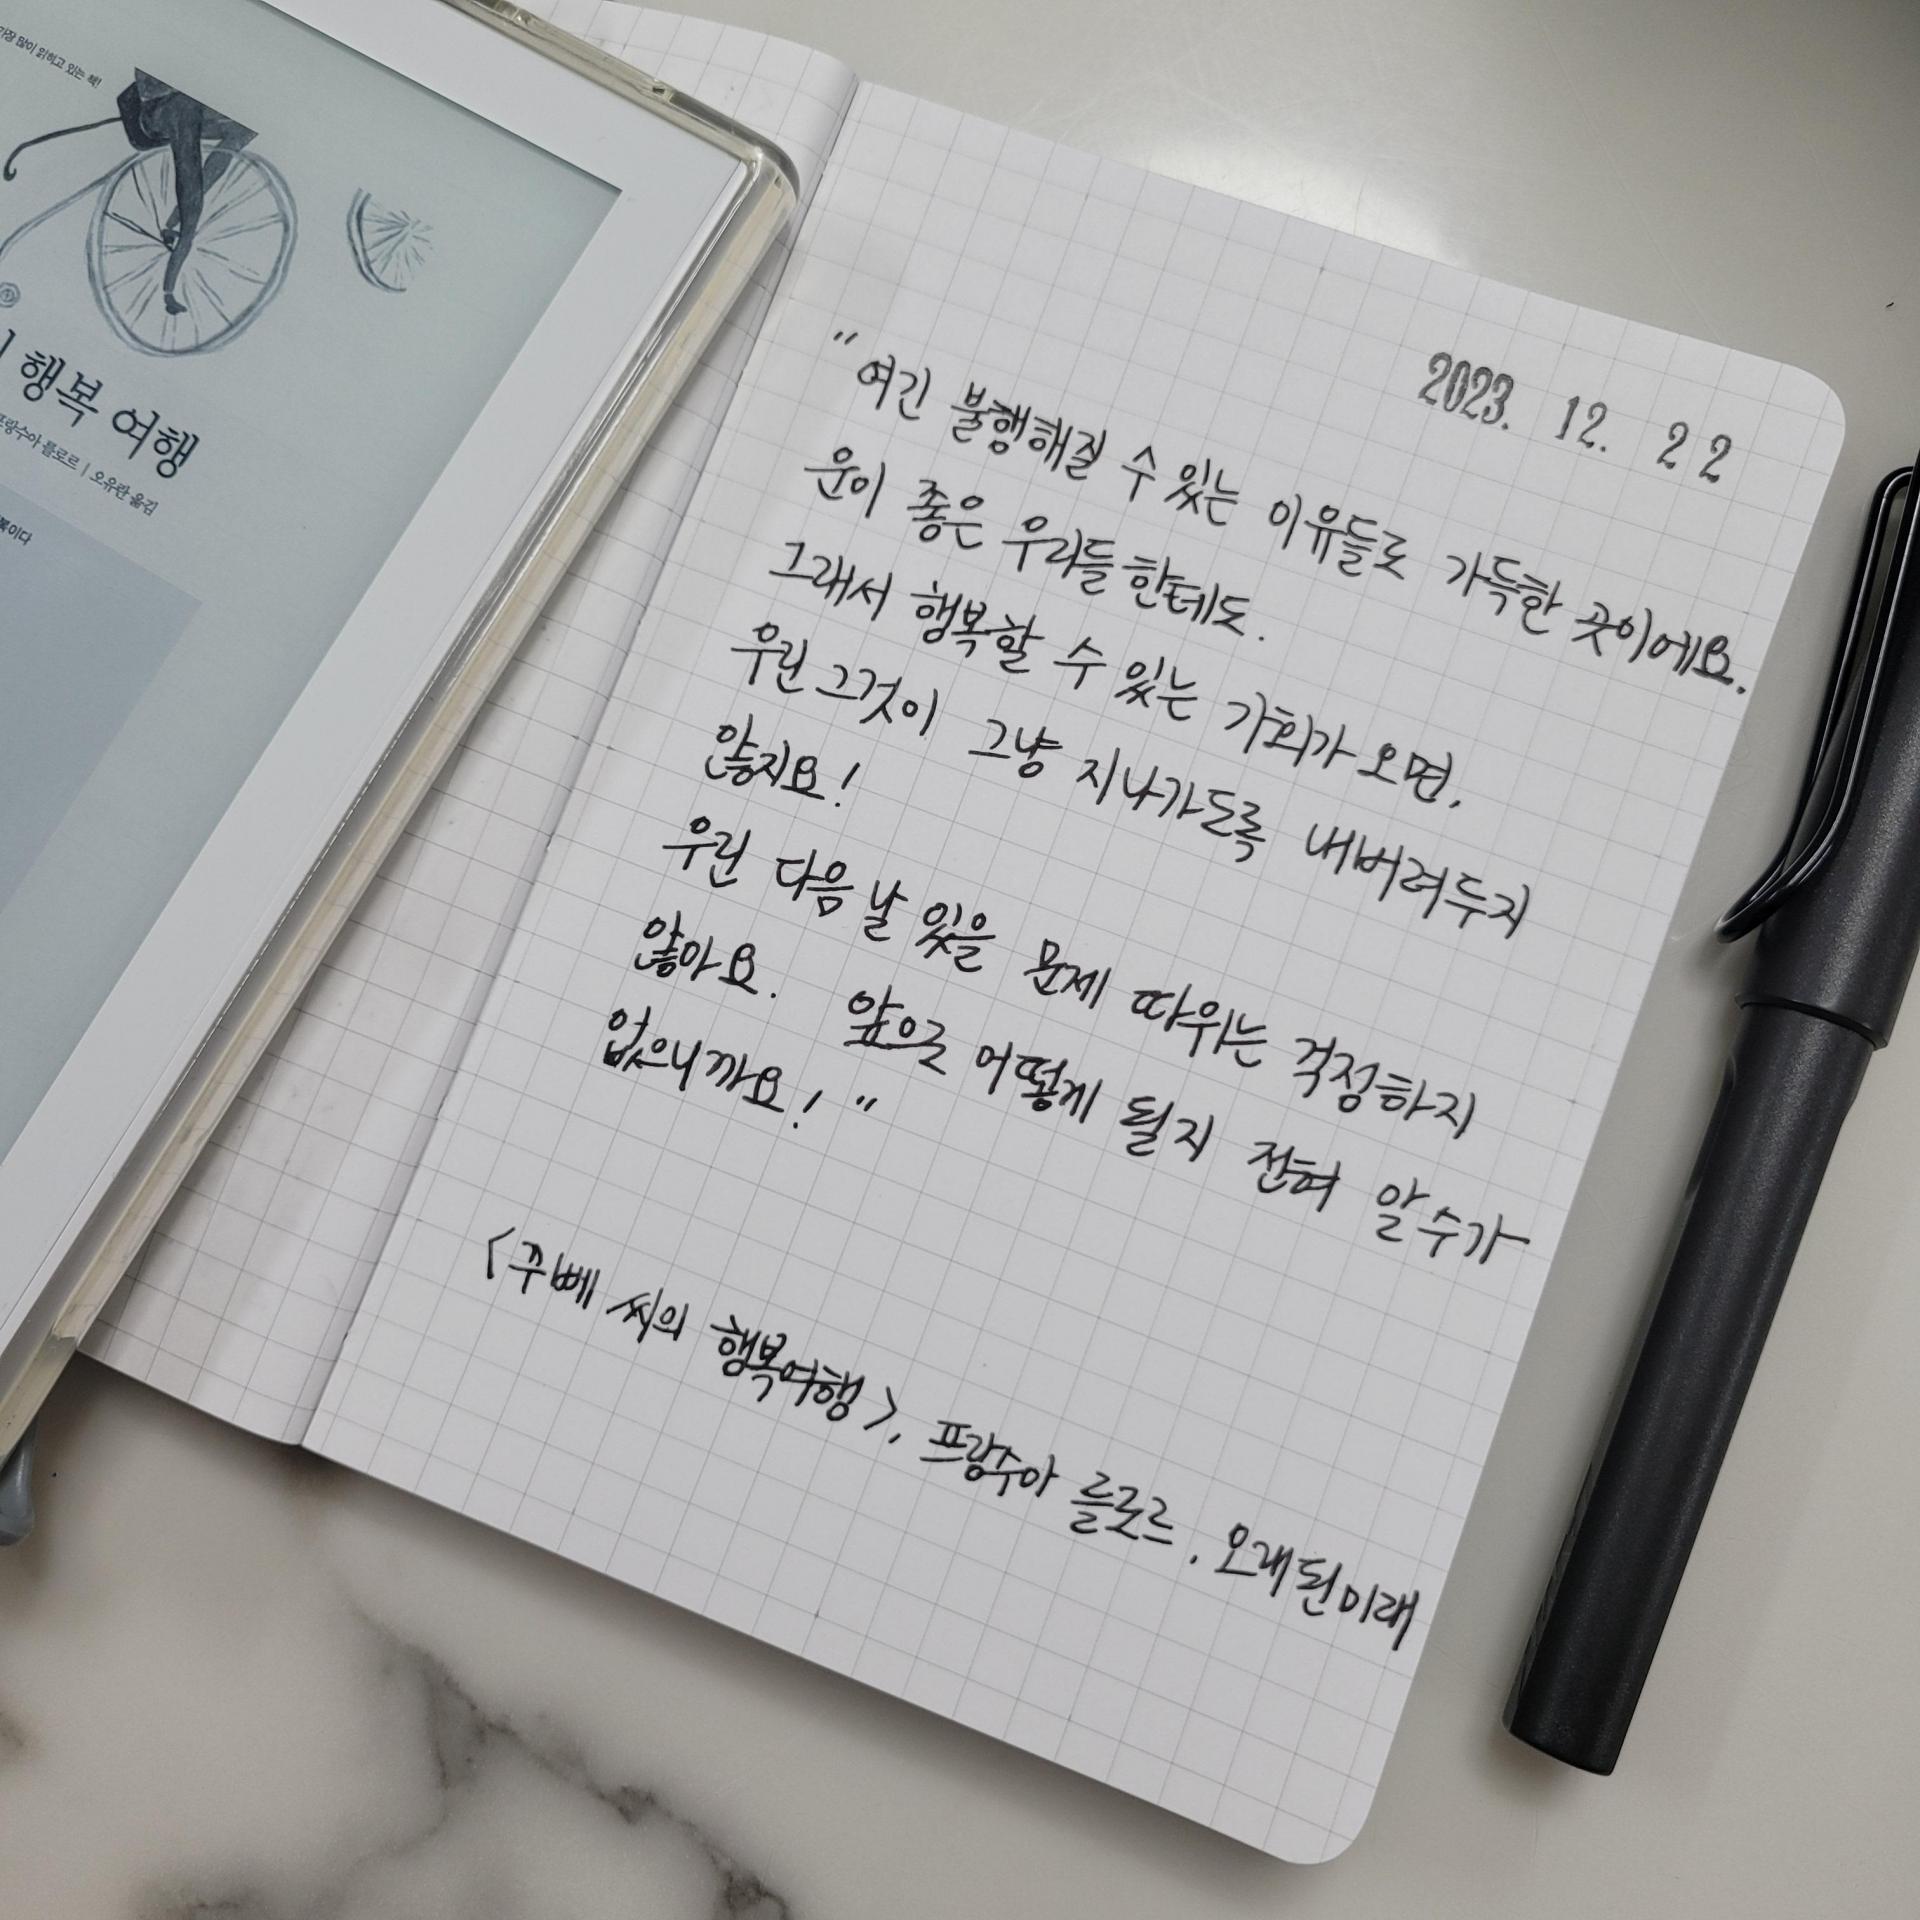 가장 많이 읽히고 있는 책!
행복 여행
프랑수아 를로르 | 오유란 옮김
복이다
2023. 12. 22
"여긴 불행해질 수 있는 이유들로 가득한 곳이에요.
운이 좋은 우리들한테도.
그래서 행복할 수 있는 기회가 오면,
우린 그것이 그냥 지나가도록 내버려두지
않지요!
우린 다음 날 있을 문제 따위는 걱정하지
않아요. 앞으로 어떻게 될지 전혀 알 수가
없으니까요!"
<꾸뻬 씨의 행복여행>, 프랑수아 를로르, 오래된미래